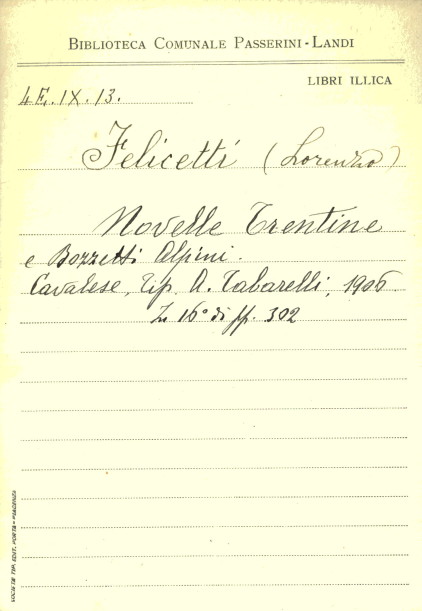 BIBLIOTECA COMUNALE PASSERINI-LANDI
LIBRI ILLICA
4E. IX. 13.
Felicetti (Lorenzo)
Novelle Trentine
e Bozzetti Alpini.
Cavalese, Tip. A. Tabarelli, 1906.
In 16° di pp. 302
TIP. EDIT. PORTA - PIACENZA